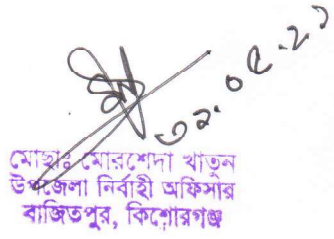 ০২.০৫.২১
মোছাঃ মোরশেদা খাতুন
উপজেলা নির্বাহী অফিসার
বাজিতপুর, কিশোরগঞ্জ